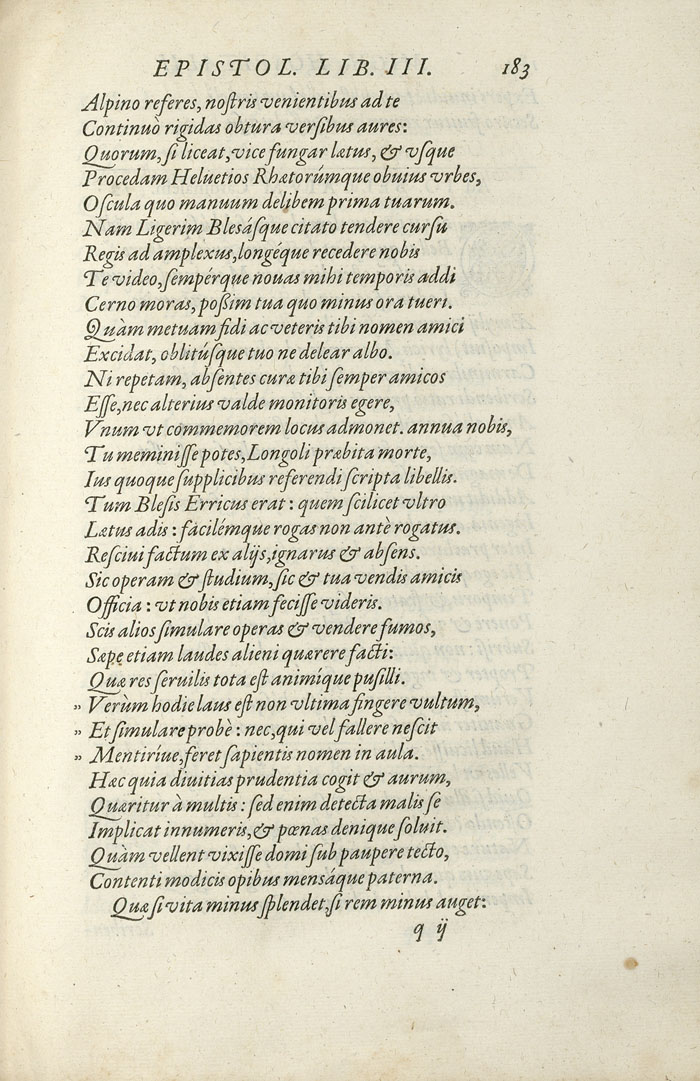 EPISTOL. LIB. III. 183
Alpino referes, noſtris venientibus ad te
Continuò rigidas obtura verſibus aures:
Quorum, ſi liceat, vice fungar lætus, & vſque
Procedam Heluetios Rhætorúmque obuius vrbes,
Oſcula quo manuum delibem prima tuarum.
Nam Ligerim Bleſáſque citato tendere curſu
Regis ad amplexus, longéque recedere nobis
Te video, ſempérque nouas mihi temporis addi
Cerno moras, poßim tua quo minus ora tueri.
Quàm metuam fidi ac veteris tibi nomen amici
Excidat, oblitúſque tuo ne delear albo.
Ni repetam, abſentes curæ tibi ſemper amicos
Eſſe, nec alterius valde monitoris egere,
Vnum vt commemorem locus admonet. annua nobis,
Tu meminiſſe potes, Longoli præbita morte,
Ius quoque ſupplicibus referendi ſcripta libellis.
Tum Bleſis Erricus erat : quem ſcilicet vltro
Lætus adis : facilémque rogas non antè rogatus.
Reſciui factum ex alijs, ignarus & abſens.
Sic operam & ſtudium, ſic & tua vendis amicis
Officia : vt nobis etiam feciſſe videris.
Scis alios ſimulare operas & vendere fumos,
Sæpe etiam laudes alieni quærere facti:
Quæ res ſeruilis tota eſt animíque puſilli.
„ Verùm hodie laus eſt non vltima fingere vultum,
„ Et ſimulare probè : nec, qui vel fallere neſcit
„ Mentiríue, feret ſapientis nomen in aula.
Hæc quia diuitias prudentia cogit & aurum,
Quæritur à multis : ſed enim detecta malis ſe
Implicat innumeris, & pœnas denique ſoluit.
Quàm vellent vixiſſe domi ſub paupere tecto,
Contenti modicis opibus mensáque paterna.
Quæ ſi vita minus ſplendet, ſi rem minus auget:
q ij